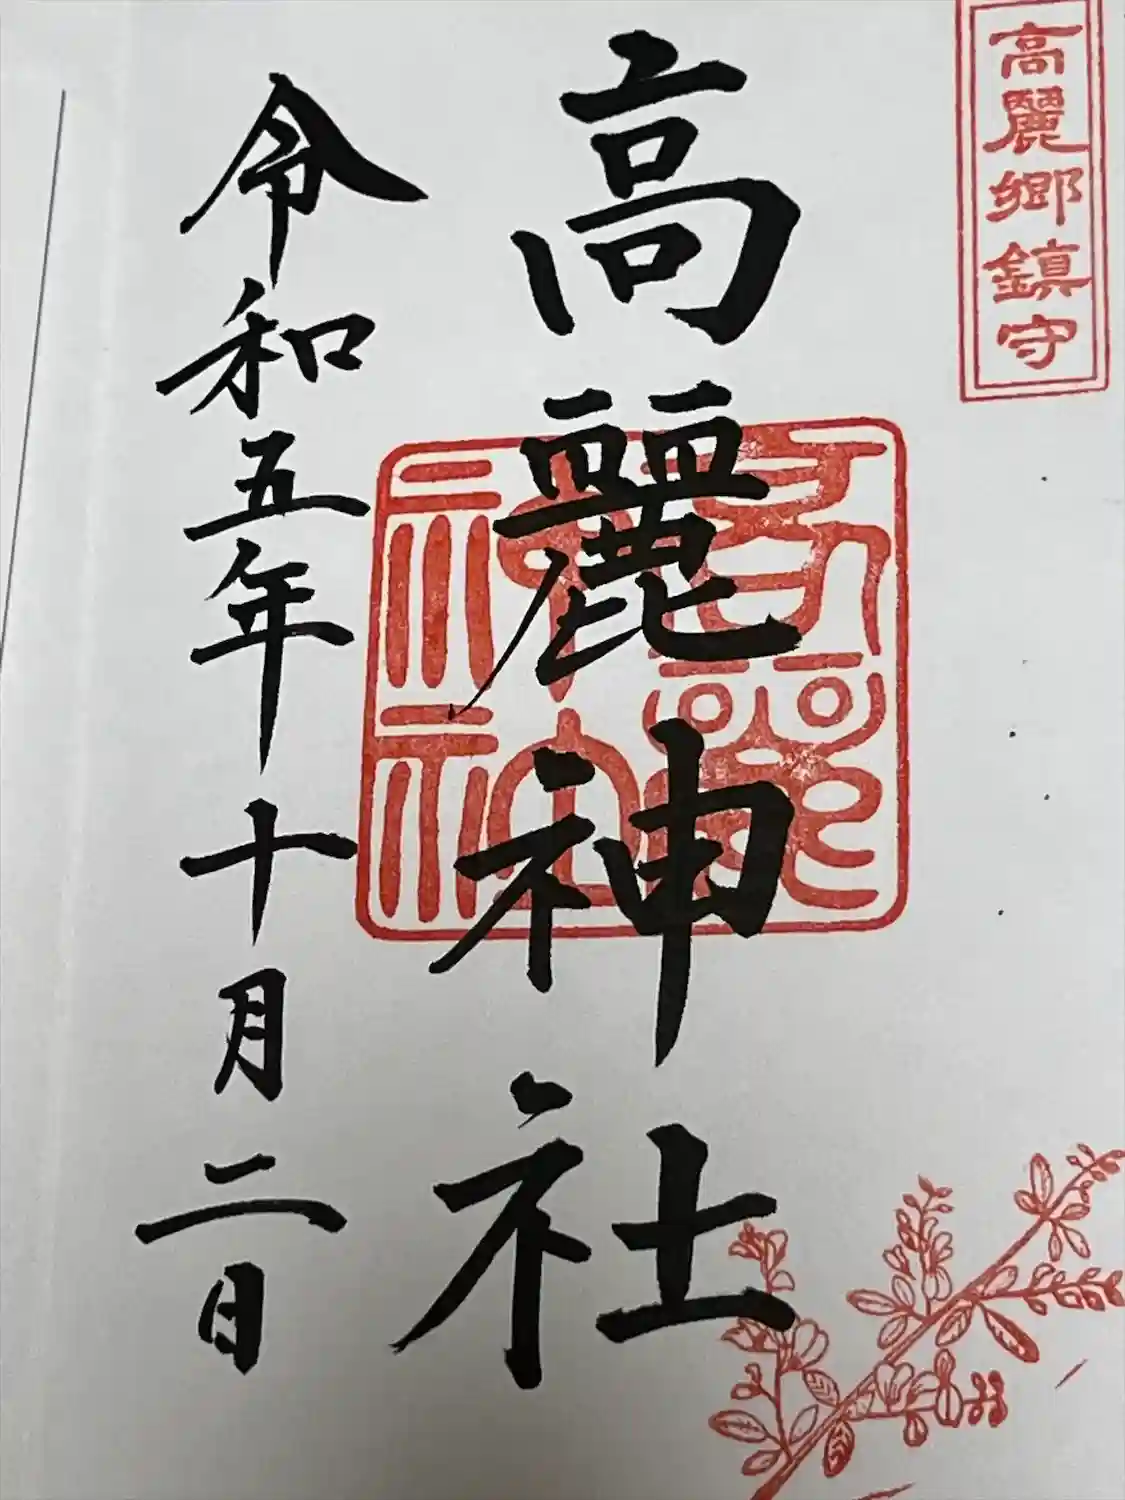 高麗郷鎮守
高麗神社
令和五年十月二日